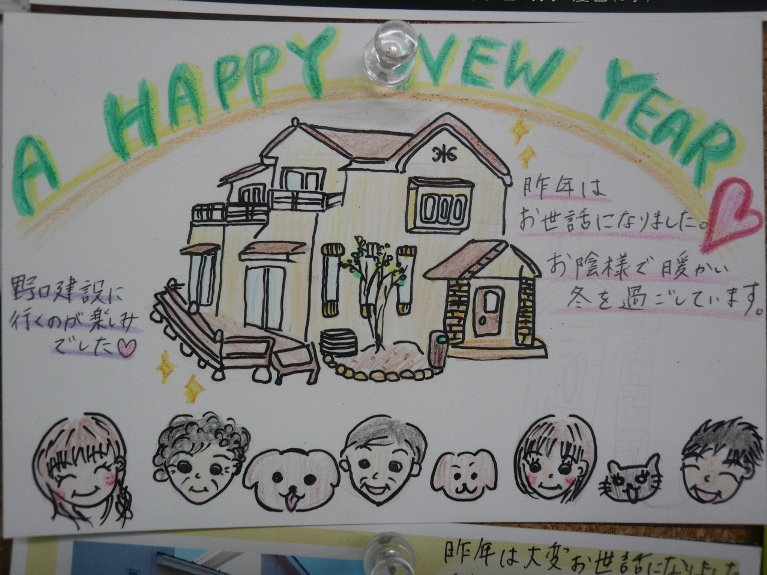 A HAPPY NEW YEAR
昨年は
お世話になりました。
お陰様で暖かい
冬を過ごしています。
野口建設に
行くのが楽しみ
でした
昨年は大変お世話になりました